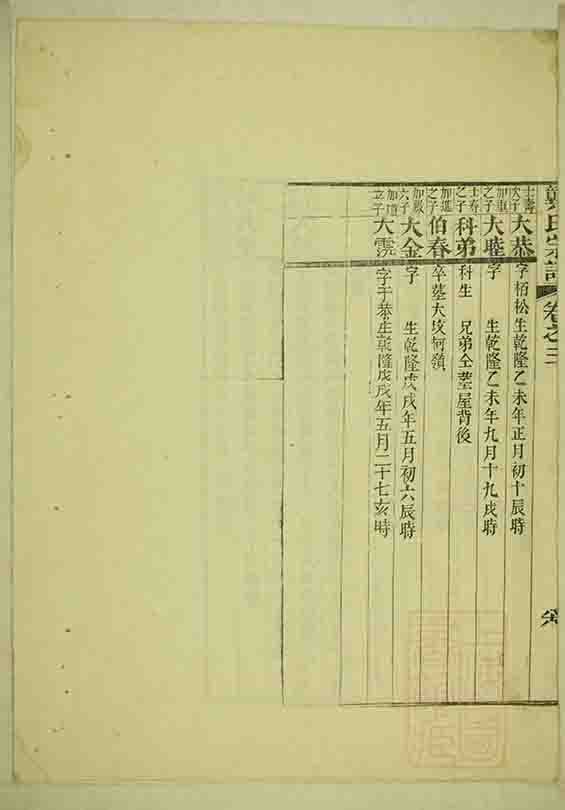 氏宗譜 卷之三
士壽次子 大恭 字栢松生乾隆乙未年正月初十辰時
之子 大睦 字 生乾隆乙未年九月十九戌時
士春之子 科弟 科生 兄弟仝塟屋背後
之子 伯春 卒塟大坟坷嶺
六子 大金 字 生乾隆戊戌年五月初六辰時
加道立子 大霓 字于恭生乾隆戊戌年五月二十七亥時